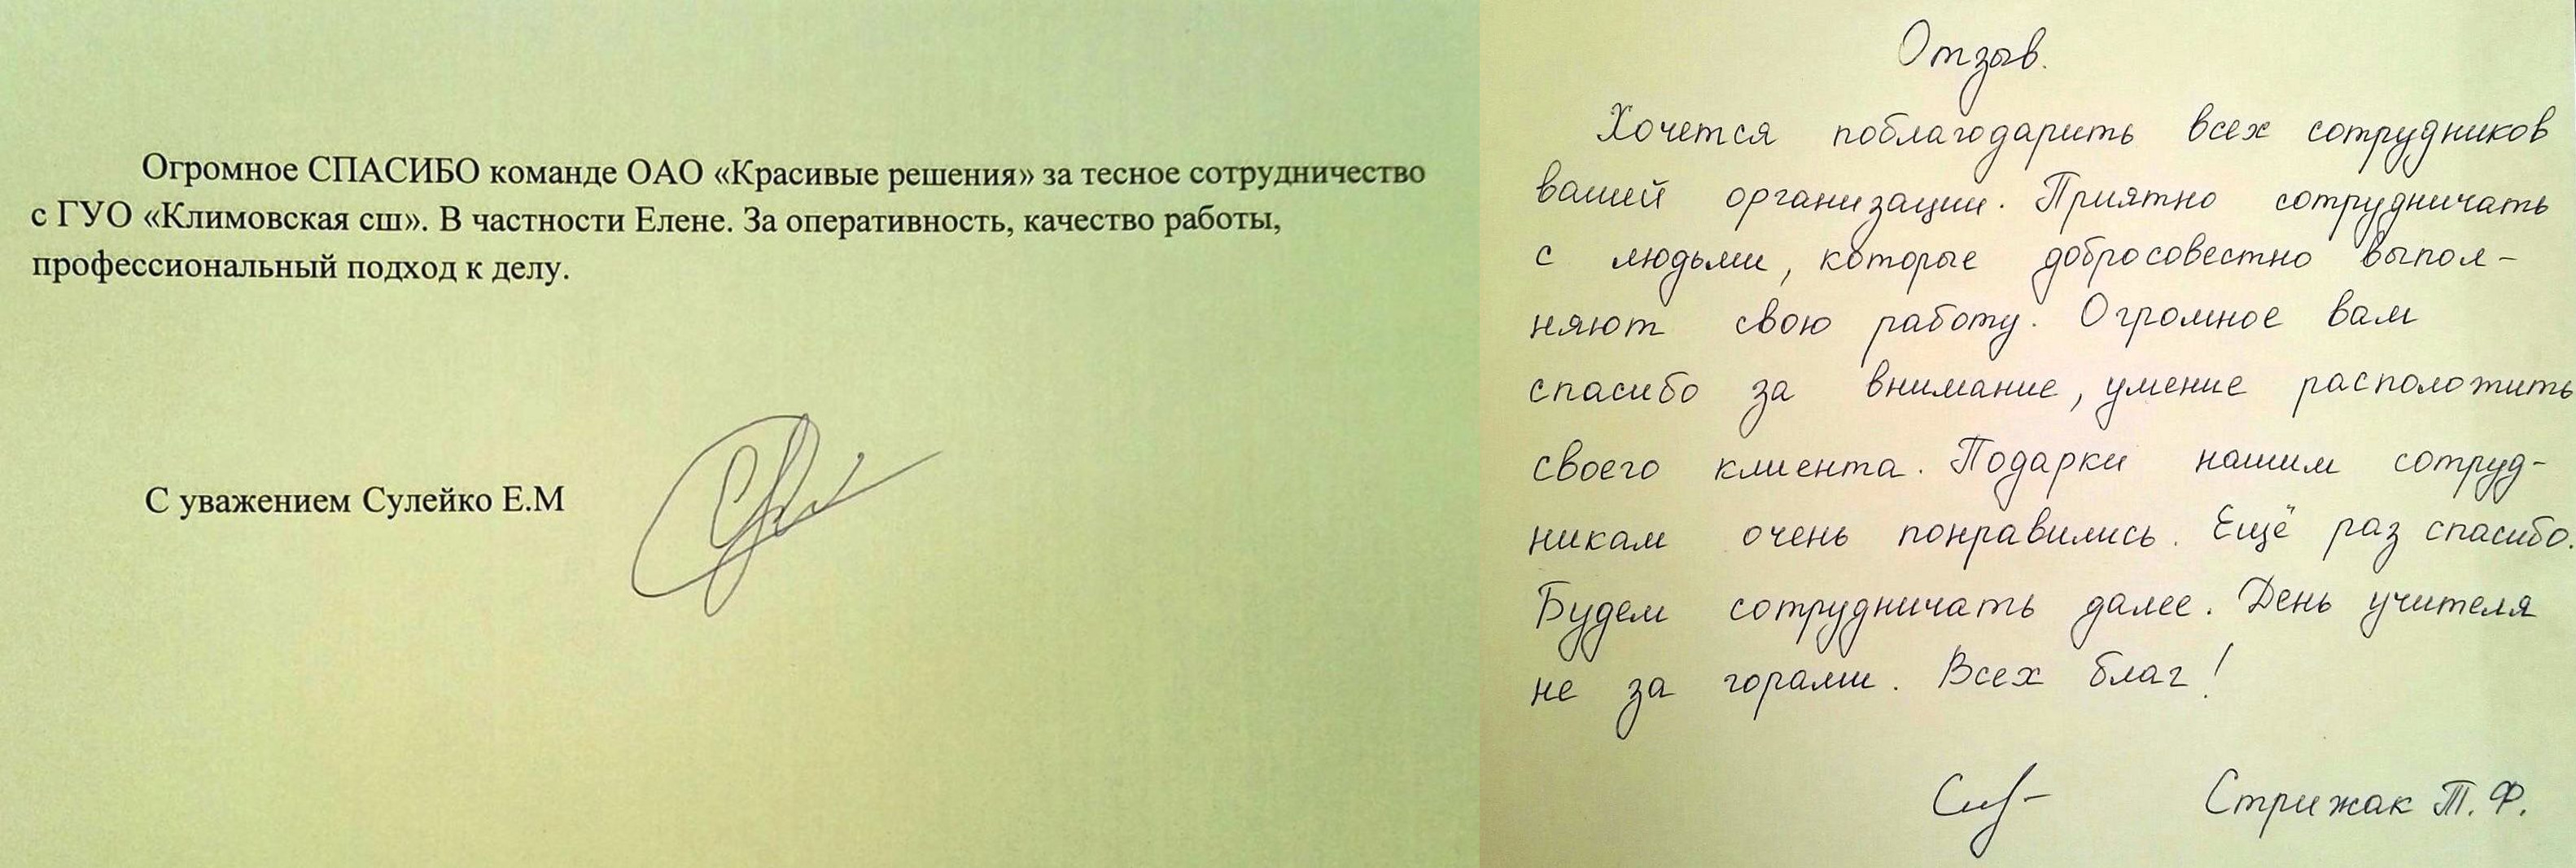 Огромное СПАСИБО команде ОАО «Красивые решения» за тесное сотрудничество
с ГУО «Климовская сш». В частности Елене. За оперативность, качество работы,
профессиональный подход к делу.
С уважением Сулейко Е.М
Отзыв.
Хочется поблагодарить всех сотрудников
вашей организации. Приятно сотрудничать
с людьми, которые добросовестно выпол-
няют свою работу. Огромное вам
спасибо за внимание, умение расположить
своего клиента. Подарки нашим сотруд-
никам очень понравились. Ещё раз спасибо.
Будем сотрудничать далее. День учителя
не за горами. Всех благ!
Стрижак Т. Ф.